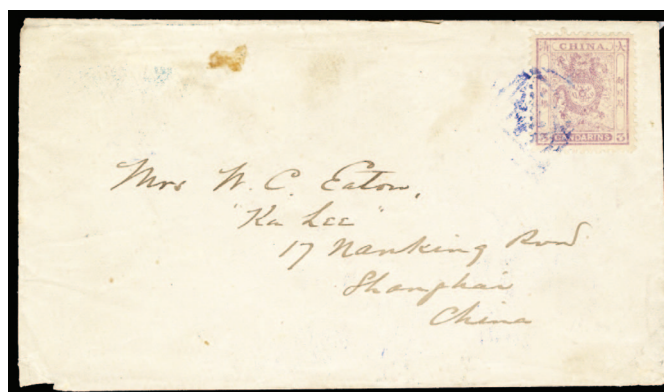 CHINA.
CANDARINS 3
Mrs W. C. Eaton,
"Ka Lee"
17 Nanking Road
Shanghai
China